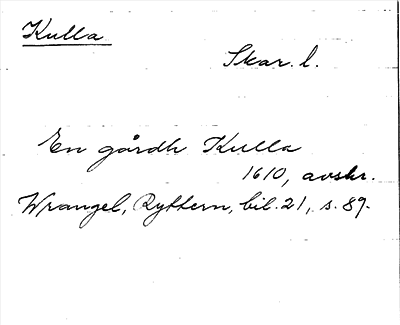 Kulla
Skar. l.
En gårdh Kulla
1610, avskr.
Wrangel, Ryttern, bil. 21, s. 89.